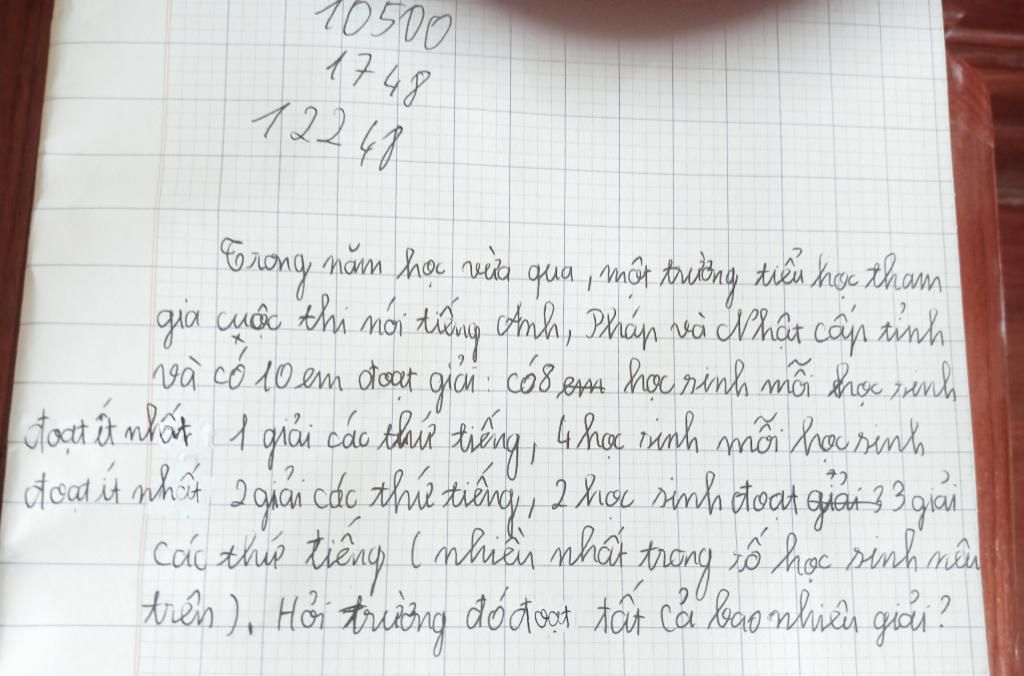 10500
1748
12248
Trong năm học vừa qua, một trường tiểu học tham
gia cuộc thi nói tiếng Anh, Pháp và Nhật cấp tỉnh
và có 10 em đoạt giải: có 8 em học sinh mỗi học sinh
đoạt ít nhất 1 giải các thứ tiếng, 4 học sinh mỗi học sinh
đoạt ít nhất 2 giải các thứ tiếng, 2 học sinh đoạt giải 3 3 giải
các thứ tiếng (nhiều nhất trong số học sinh nêu
trên). Hỏi trường đó đoạt tất cả bao nhiêu giải?